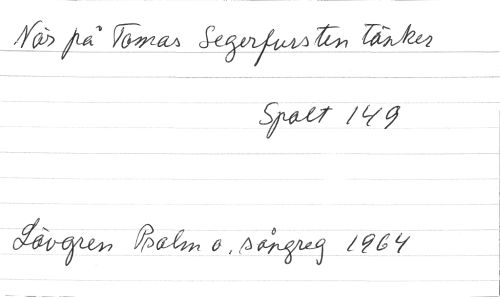 När på Tomas Segerfursten tänker
Spalt 149
Lövgren Psalm o. sångreg 1964